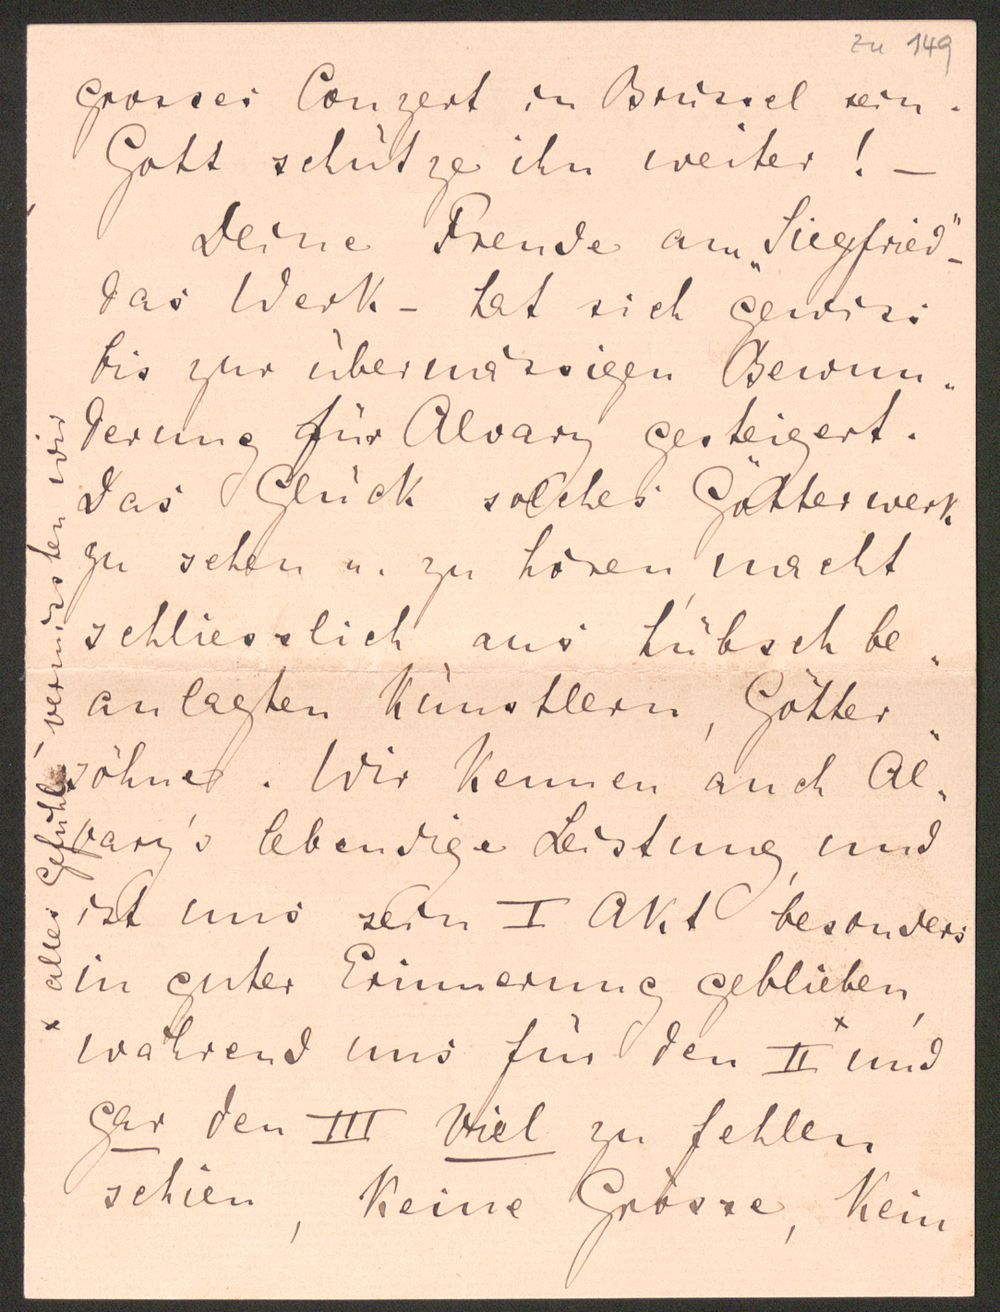 zu 149
grosses Conzert in Brüssel sein.
Gott schütze ihn weiter! –
Deine Freude am „Siegfried" –
das Werk – hat sich gewiss
bis zur übermässigen Bewun„
derung für Alvary gesteigert.
Das Glück solches Götterwerk
zu sehen u. zu hören, macht
schliesslich aus hübsch be„
anlagten Künstlern, Götter„
söhne. Wir kennen auch Al„
vary's lebendige Leistung und
ist uns sein I Akt besonders
in guter Erinnerung geblieben,
während uns für den II x und
gar den III viel zu fehlen
schien, keine Grösse, kein
x alles Gefühl vermissten wir